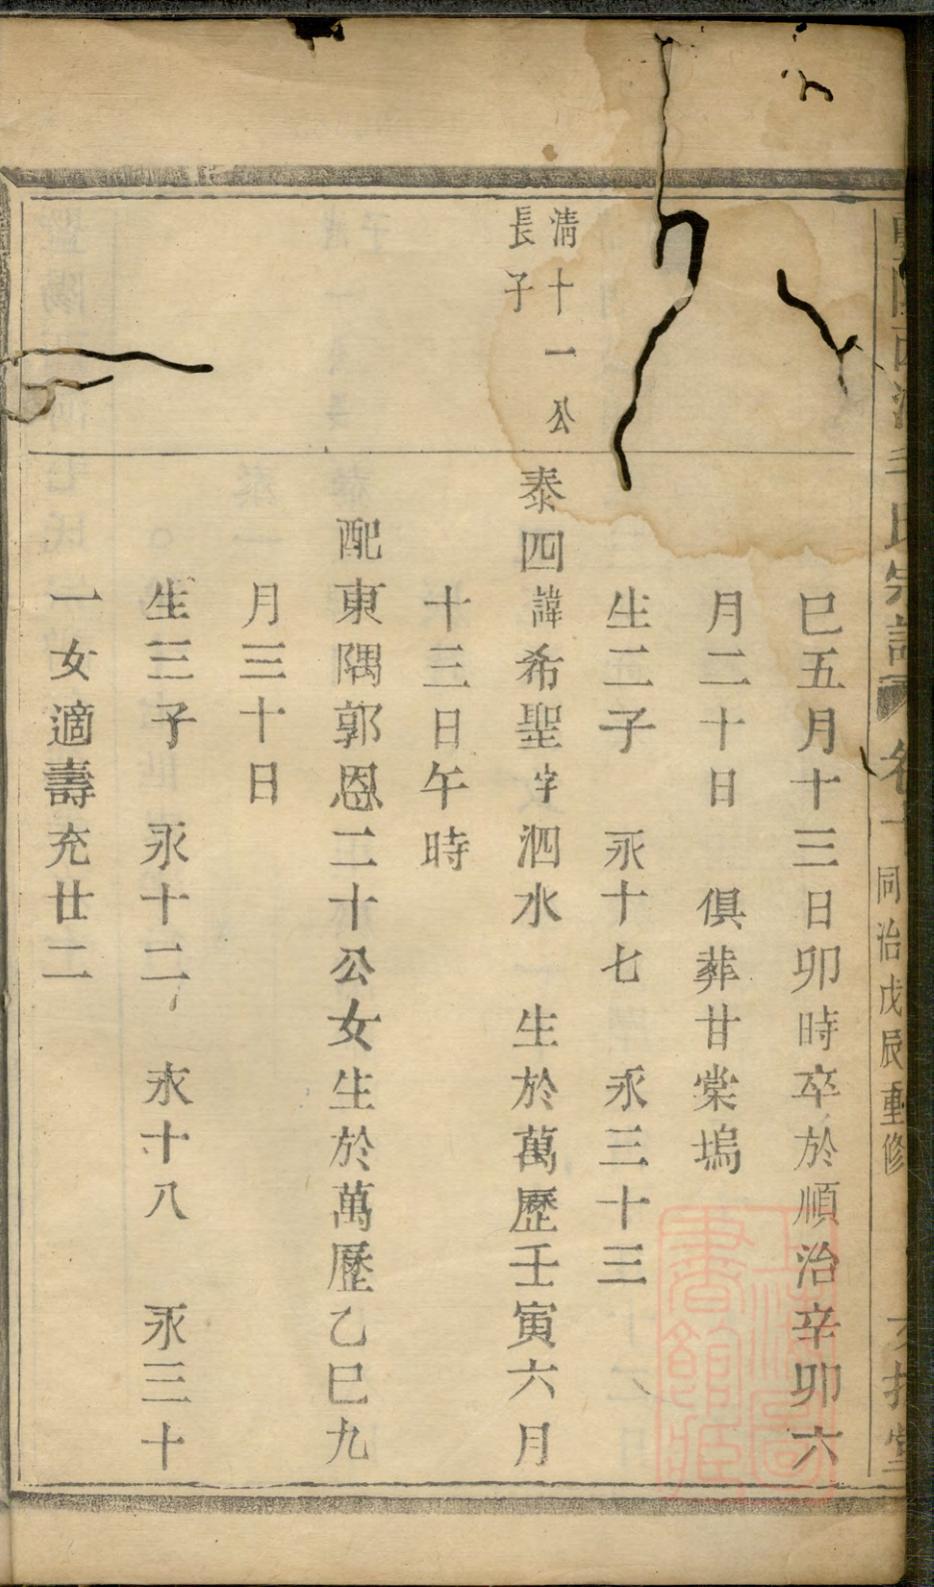 巳五月十三日卯時卒於順治辛卯六
月二十日　俱葬甘棠塢
生二子　永十七　永三十三
清十一公
長子
泰四諱希聖字泗水　生於萬歷壬寅六月
十三日午時
配東隅郭恩二十公女生於萬歷乙巳九
月三十日
生三子　永十二　永十八　永三十
一女適壽充廿二
氏宗譜　卷一　同治戊辰重修